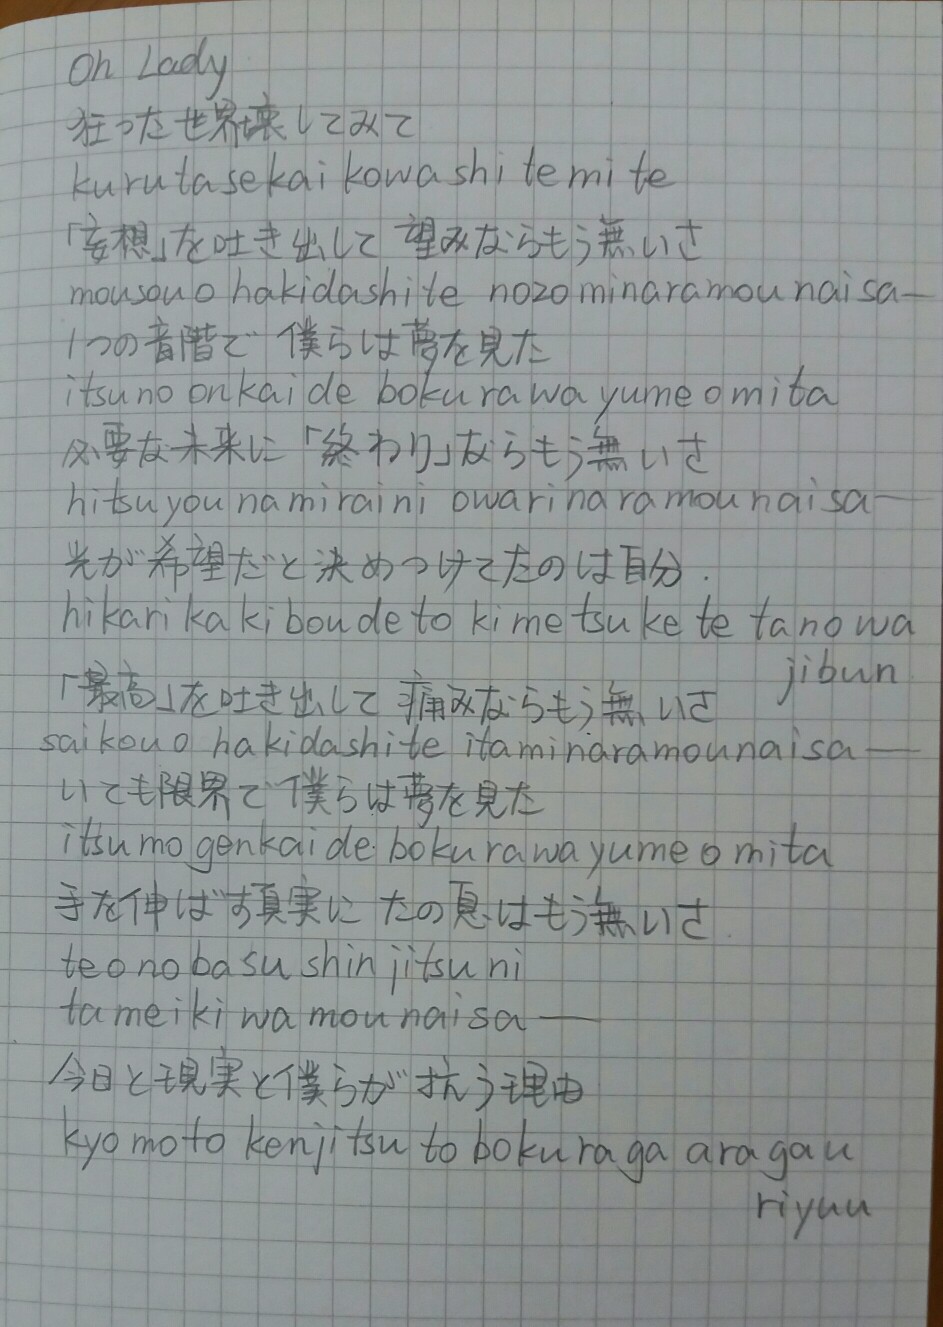 Oh Lady
狂った世界壊してみて
kurutasekai kowashitemite
「妄想」を吐き出して 望みならもう無いさ
mousouo hakidashite nozominaramounaisa—
1つの音階で 僕らは夢を見た
itsuno onkaide bokurawayumeomita
必要な未来に「終わり」ならもう無いさ
hitsuyounamiraini owarinaramounaisa—
光が希望だと決めつけてたのは自分.
hikarikakiboudeto kimetsuketetanowa
jibun
「最高」を吐き出して 痛みならもう無いさ
saikouo hakidashite itaminaramounaisa—
いても限界で 僕らは夢を見た
itsumogenkaide bokurawayumeomita
手を伸ばす真実に ための息はもう無いさ
teonobasushinjitsuni
tameikiwamounaisa—
今日と現実と僕らが抗う理由
kyomoto kenjitsutobokuraga aragau
riyuu